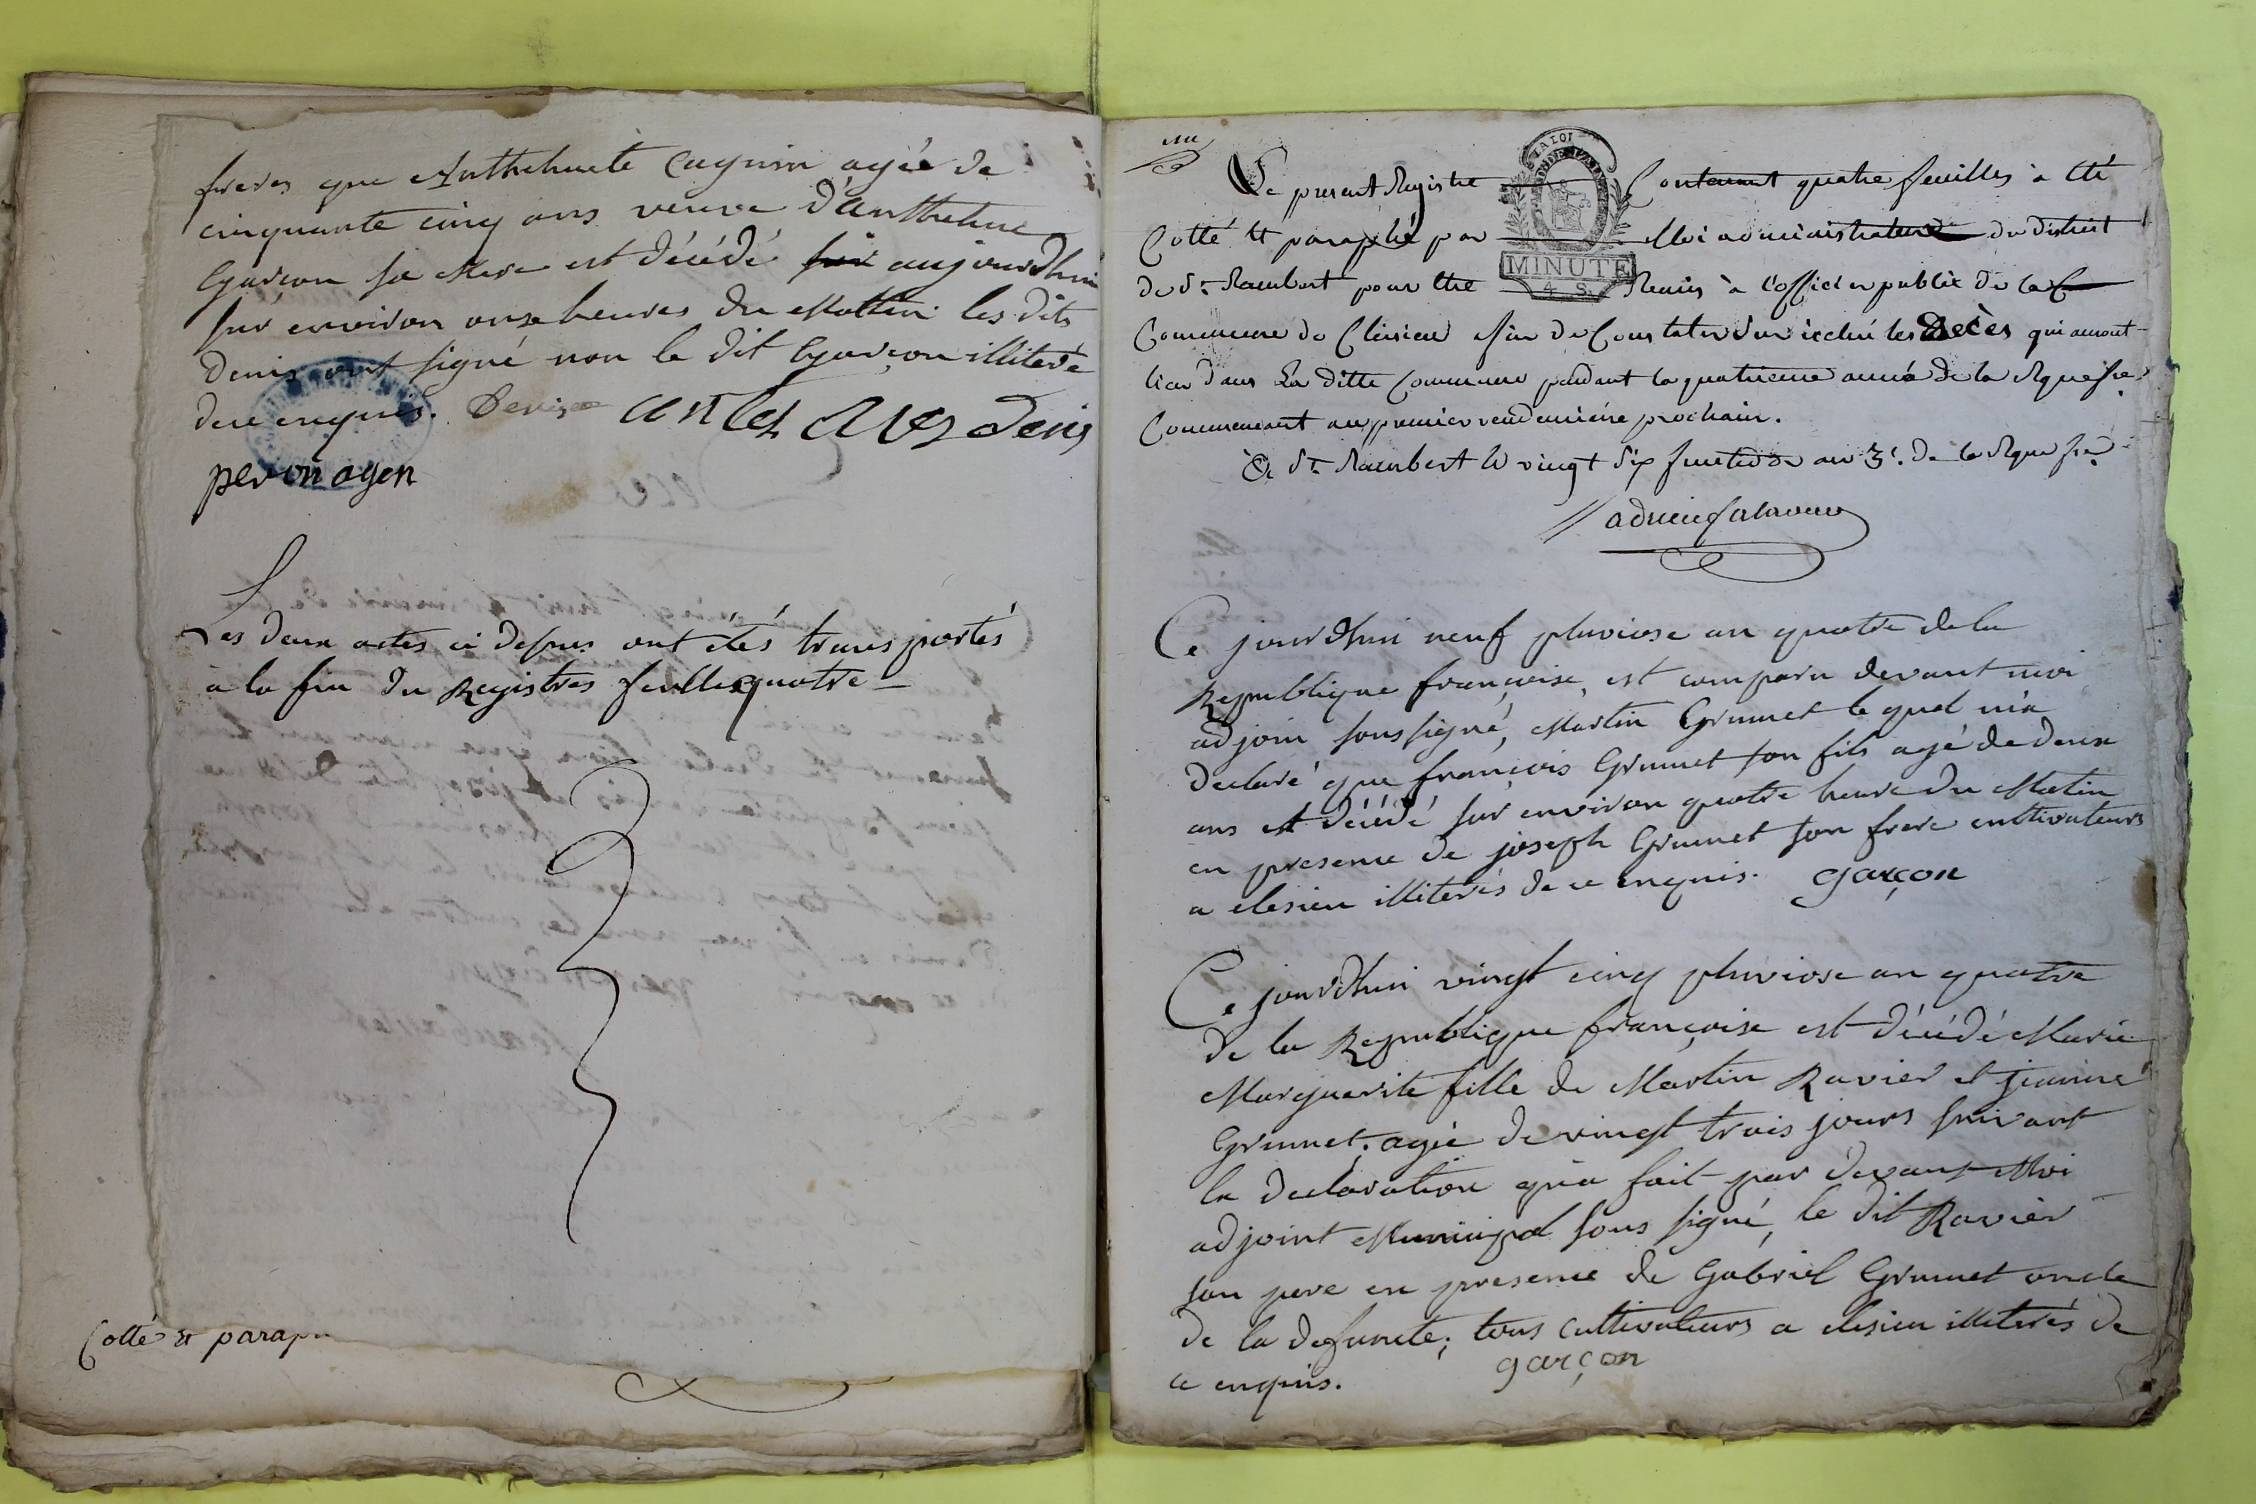 freres que Anthelmete Cugnin agée de
cinquante cinq ans veuve d'Anthelme
Garcon sa Mere est décédé sur aujourdhui
sur environ onze heures du Mattin les dits
Denis ont signé non le dit Garçon illiteré
de ce enquis. Denis Denis
peronagen
Les deux actes ci desus ont étés transportés
à la fin du Registres feulles quatre
Cotté & parap
LA LOI
MINUTE
4 S.
Le present Registre Contenant quatre feuilles a été
Cotté et paraphé par Moi administrateur du district
de St. Rambert pour etre Remis à l'officier public de la C
Commune de Cleisieu afin de Constater sur icelui les Decès qui auront
lieu dans La ditte Commune pendant la quatrieme année de la Repque fse
Commencant au premier vendemiere prochain.
A St. Rambert le vingt six fructidor an 3e. de la Repque fse
Ce jourdhui neuf pluviose an quatre de la
Republique françoise, est comparu devant moi
adjoin soussigné, Martin Grumet le quel m'a
declaré que françois Grumet son fils agé de deux
ans est décédé sur environ quatre heure du Matin
en presence de joseph Grumet son frere cultivateurs
a clesieu illiterés de ce enquis. garçon
Ce jourdhui vingt cinq pluviose an quatre
de la Republique françoise est décédé Marie
Marguerite fille de Martin Ravier et jeanne
Grumet, agée de vingt trois jours suivant
la declaration qu'a fait par devant Moi
adjoint Municipal sous signé, le dit Ravier
son pere en presence de Gabriel Grumet oncle
de la defuncte; tous cultivateurs a clesieu illiterés de
ce enquis. garçon